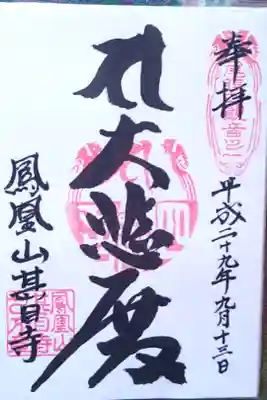 奉拝
平成二十九年九月十三日
大悲殿
鳳凰山甚目寺
鳳凰山
甚目寺